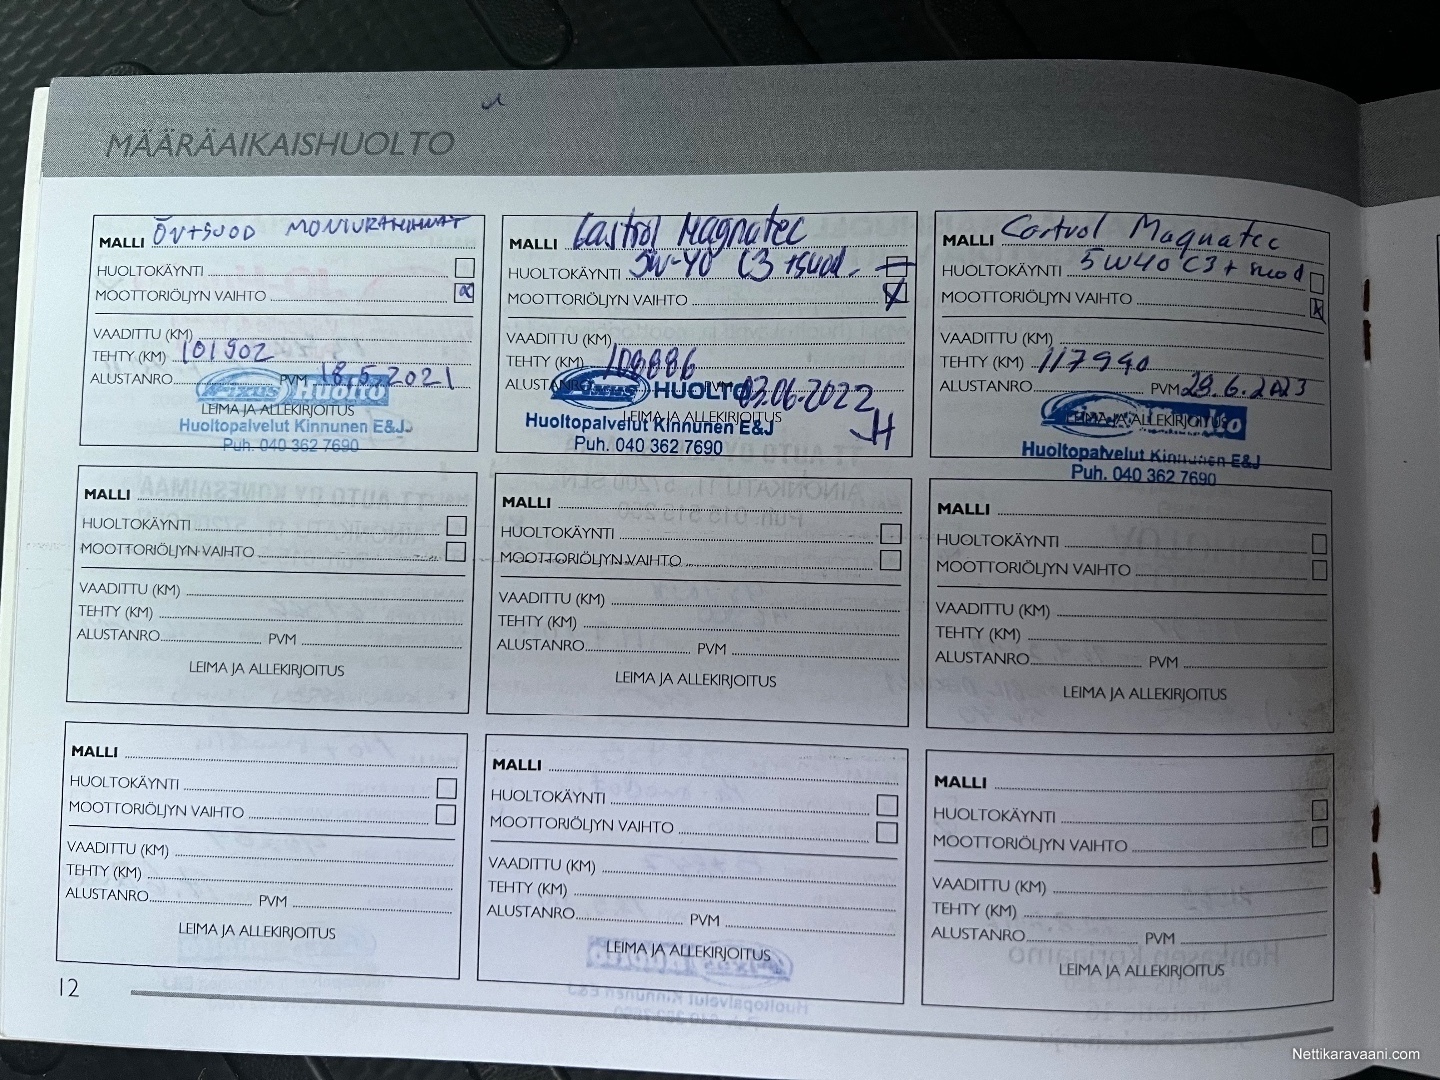 MÄÄRÄAIKAISHUOLTO
MALLI ÖV+SUOD
HUOLTOKÄYNTI
MOOTTORIÖLJYN VAIHTO x
VAADITTU (KM)
TEHTY (KM) 101902
ALUSTANRO PVM 18.5.2021
LEIMA JA ALLEKIRJOITUS
Fixus Huolto
Huoltopalvelut Kinnunen E&J
Puh. 040 362 7690
MALLI Castrol Magnatec
HUOLTOKÄYNTI 5W-40 C3 +suod.
MOOTTORIÖLJYN VAIHTO X
VAADITTU (KM)
TEHTY (KM) 108886
ALUSTANRO PVM 03.06.2022
LEIMA JA ALLEKIRJOITUS
Fixus HUOLTO
Huoltopalvelut Kinnunen E&J
Puh. 040 362 7690
MALLI Castrol Magnatec
HUOLTOKÄYNTI 5W40 C3 + suod
MOOTTORIÖLJYN VAIHTO X
VAADITTU (KM)
TEHTY (KM) 117990
ALUSTANRO PVM 28.6.2023
LEIMA JA ALLEKIRJOITUS
Huoltopalvelut Kinnunen E&J
Puh. 040 362 7690
MALLI
HUOLTOKÄYNTI
MOOTTORIÖLJYN VAIHTO
VAADITTU (KM)
TEHTY (KM)
ALUSTANRO PVM
LEIMA JA ALLEKIRJOITUS
MALLI
HUOLTOKÄYNTI
MOOTTORIÖLJYN VAIHTO
VAADITTU (KM)
TEHTY (KM)
ALUSTANRO PVM
LEIMA JA ALLEKIRJOITUS
MALLI
HUOLTOKÄYNTI
MOOTTORIÖLJYN VAIHTO
VAADITTU (KM)
TEHTY (KM)
ALUSTANRO PVM
LEIMA JA ALLEKIRJOITUS
MALLI
HUOLTOKÄYNTI
MOOTTORIÖLJYN VAIHTO
VAADITTU (KM)
TEHTY (KM)
ALUSTANRO PVM
LEIMA JA ALLEKIRJOITUS
MALLI
HUOLTOKÄYNTI
MOOTTORIÖLJYN VAIHTO
VAADITTU (KM)
TEHTY (KM)
ALUSTANRO PVM
LEIMA JA ALLEKIRJOITUS
MALLI
HUOLTOKÄYNTI
MOOTTORIÖLJYN VAIHTO
VAADITTU (KM)
TEHTY (KM)
ALUSTANRO PVM
LEIMA JA ALLEKIRJOITUS
12
Nettikaravaani.com